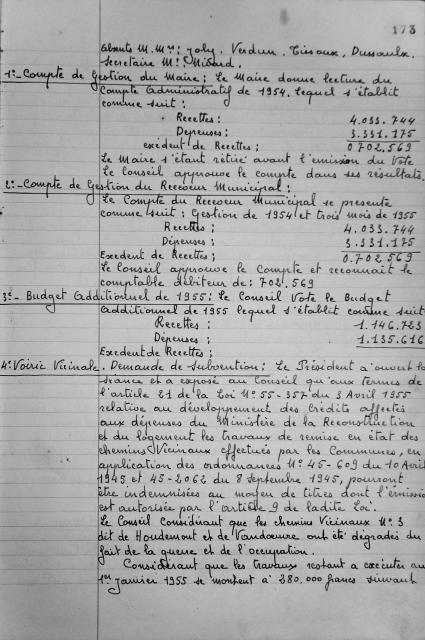 173
Absents M.Mrs: Joly, Verdun, Tissoux, Dussaulx.
Secrétaire Mr. Milard.
1º- Compte de Gestion du Maire: Le Maire donne lecture du
Compte Administratif de 1954. lequel s'établit
comme suit:
Recettes: 4.033.744
Dépenses: 3.331.175
exédent de Recettes; 0 702.569
Le Maire s'étant rétiré avant l'émission du Vote
Le Conseil approuve le compte dans ses résultats.
2º- Compte de Gestion du Receveur Municipal:
Le Compte du Receveur Municipal se présente
comme suit: Gestion de 1954 et trois mois de 1955
Recettes; 4.033.744
Dépenses: 3.331.175
Exedent de Recettes; 0.702.569
Le Conseil approuve le Compte et reconnait le
comptable débiteur de: 702.569
3º- Budget Additionnel de 1955: Le Conseil Vote le Budget
Additionnel de 1955 lequel s'établit comme suit
Recettes: 1.146.723
Dépenses; 1.135.616
Exedent de Recettes;
4º Voirie Vicinale. Demande de Subvention: Le Président a ouvert la
séance et a exposé au Conseil qu'aux termes de
l'article 21 de la Loi Nº 55-357 du 3 Avril 1955
relative au développement des Crédits affectés
aux dépenses du Ministère de la Reconstruction
et du logement les travaux de remise en état des
chemins Vicinaux effectués par les Communes, en
application des ordonnances Nº 45-609 du 10 Avril
1945 et 45-2062 du 8 Septembre 1945, pourront
être indemnisées au moyen de titres dont l'émission
est autorisée par l'article 9 de ladite Loi.
Le Conseil Considérant que les chemins Vicinaux Nº 3
dit de Houdemont et de Vandoeuvre ont été dégradés du
fait de la guerre et de l'occupation.
Considérant que les travaux restant à exécuter au
1er Janvier 1955 se montent à 280.000 francs suivant